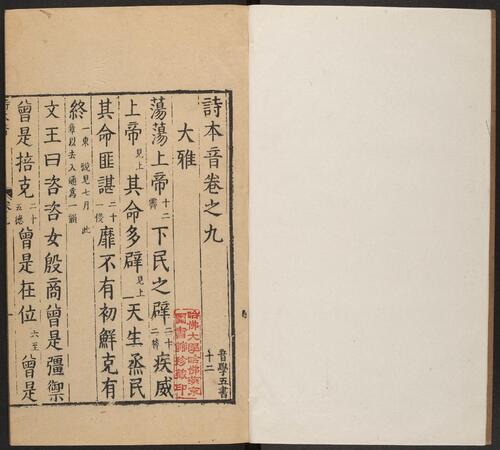 詩本音卷之九
音學五書
十二
大雅
蕩蕩上帝十二霽下民之辟二十二昔疾威
上帝見上其命多辟見上天生烝民
其命匪諶二十一侵靡不有初鮮克有
終一東說見七月此章以去入通為一韻
文王曰咨咨女殷商曾是彊禦
曾是掊克二十五德曾是在位六至曾是
哈佛大學哈佛燕京圖書館珍藏印